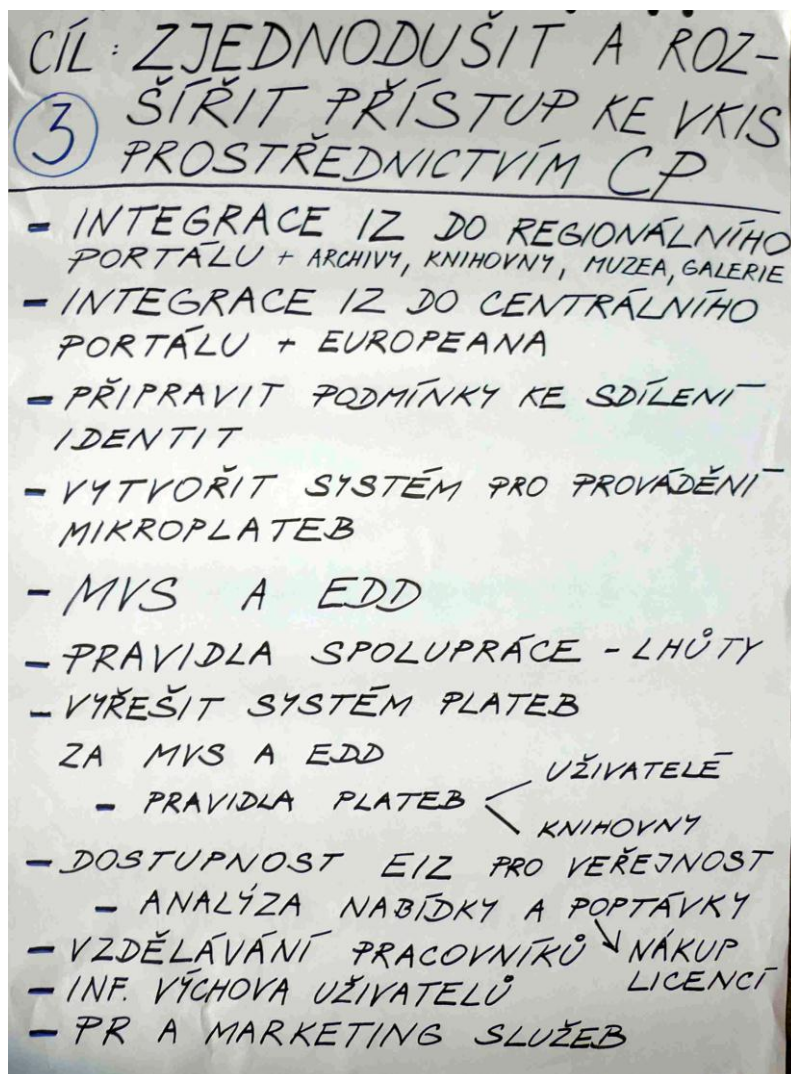 CÍL: ZJEDNODUŠIT A ROZ-
③ ŠÍŘIT PŘÍSTUP KE VKIS
PROSTŘEDNICTVÍM CP
- INTEGRACE IZ DO REGIONÁLNÍHO
PORTÁLU + ARCHIVY, KNIHOVNY, MUZEA, GALERIE
- INTEGRACE IZ DO CENTRÁLNÍHO
PORTÁLU + EUROPEANA
- PŘIPRAVIT PODMÍNKY KE SDÍLENÍ
IDENTIT
- VYTVOŘIT SYSTÉM PRO PROVÁDĚNÍ
MIKROPLATEB
- MVS A EDD
- PRAVIDLA SPOLUPRÁCE - LHŮTY
- VYŘEŠIT SYSTÉM PLATEB
ZA MVS A EDD
- PRAVIDLA PLATEB
UŽIVATELÉ
KNIHOVNY
- DOSTUPNOST EIZ PRO VEŘEJNOST
- ANALÝZA NABÍDKY A POPTÁVKY
- VZDĚLÁVÁNÍ PRACOVNÍKŮ
NÁKUP
LICENCÍ
- INF. VÝCHOVA UŽIVATELŮ
- PR A MARKETING SLUŽEB